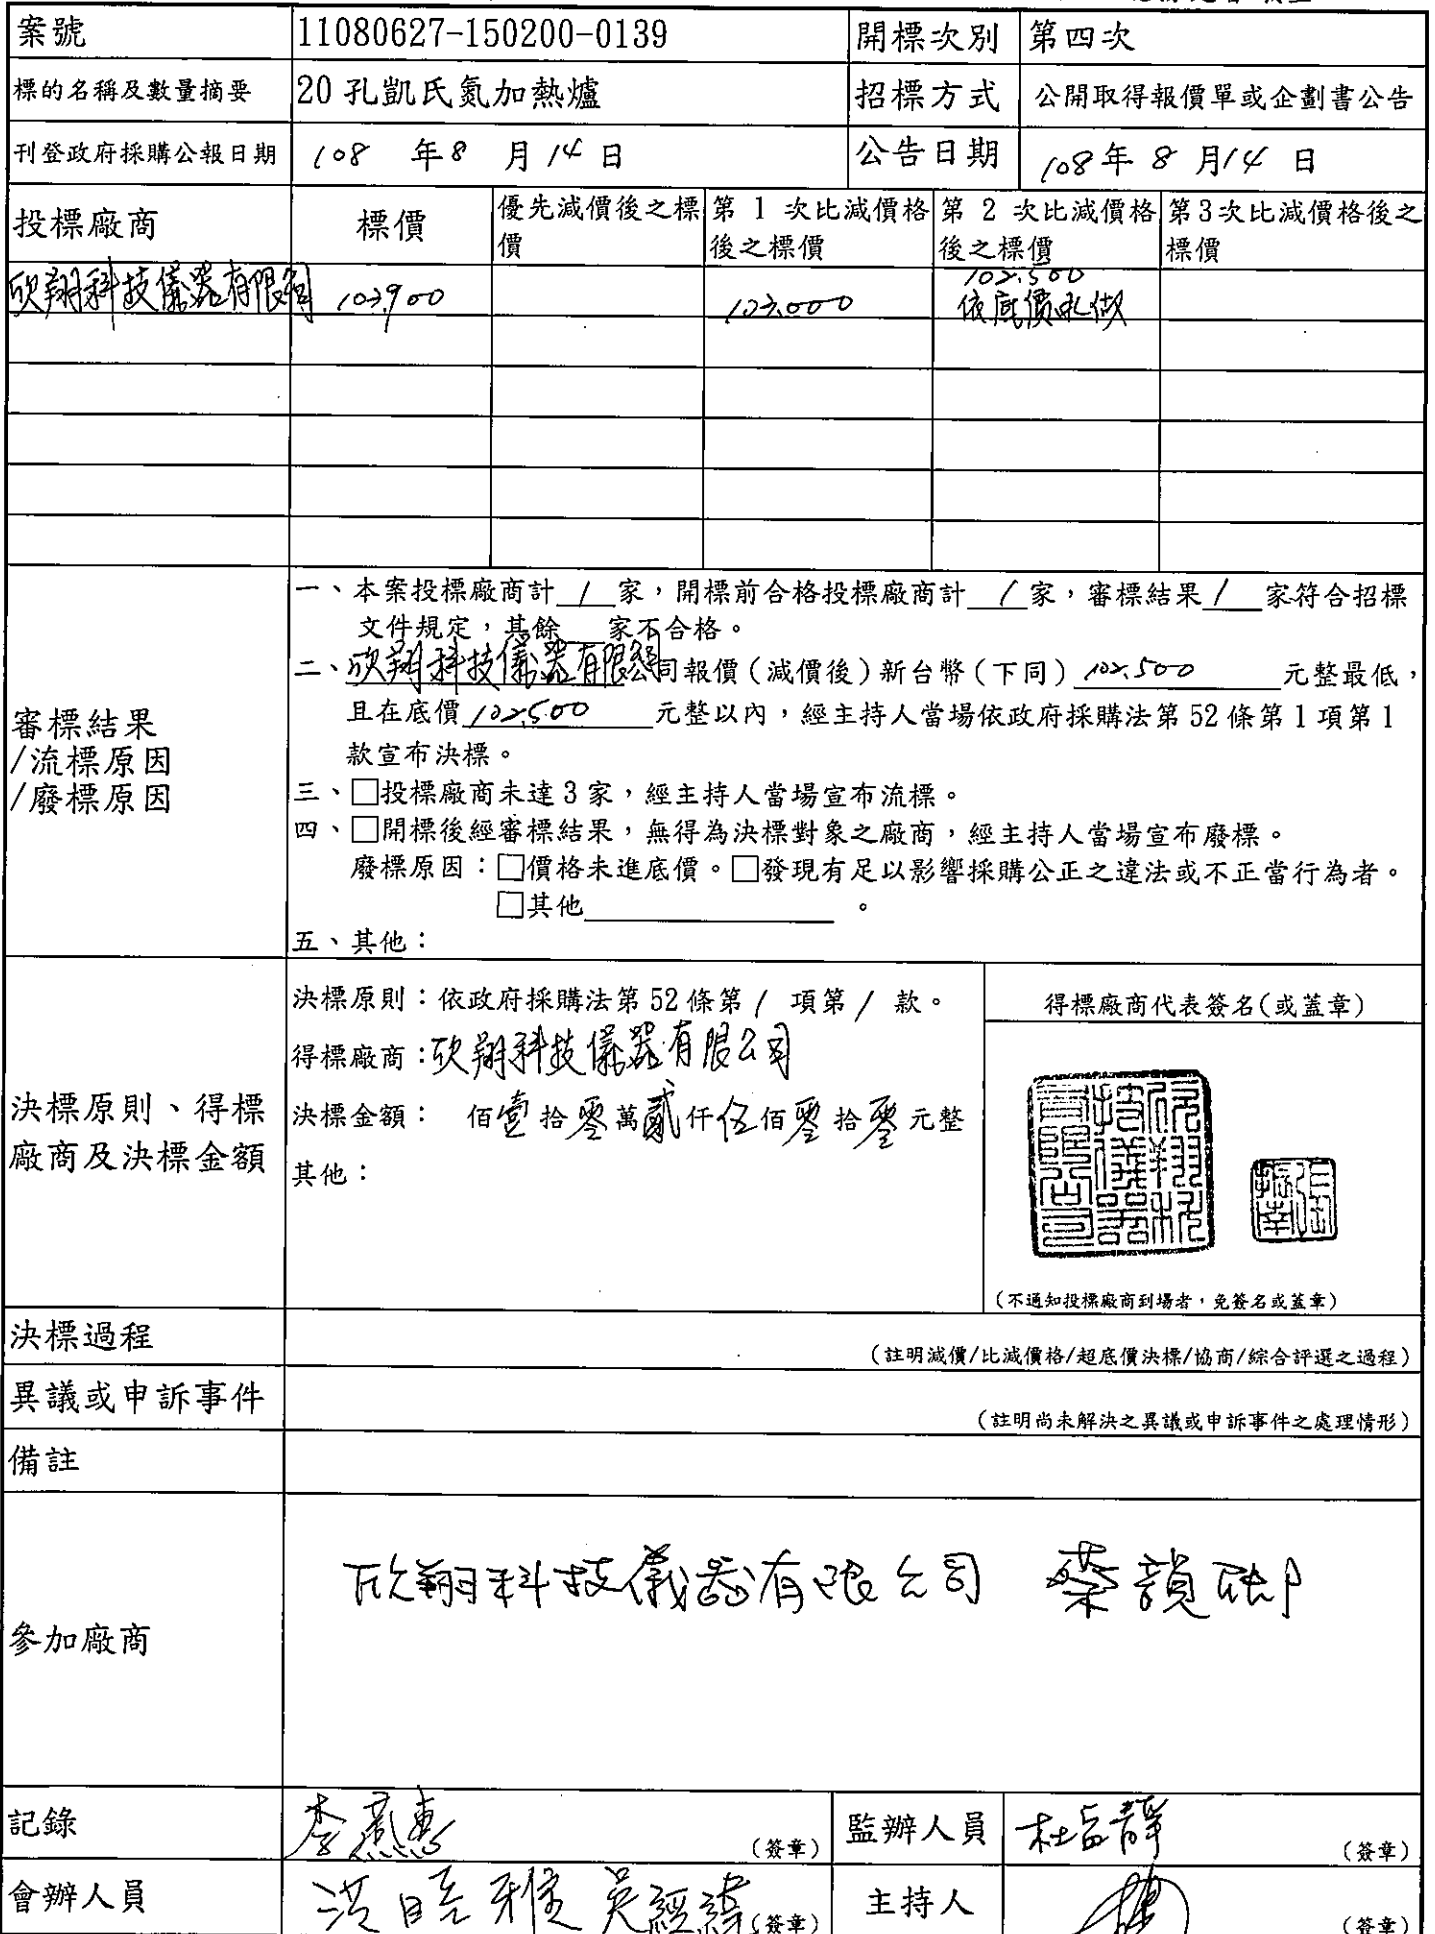 案號 11080627-150200-0139 開標次別 第四次
標的名稱及數量摘要 20 孔凱氏氮加熱爐 招標方式 公開取得報價單或企劃書公告
刊登政府採購公報日期 108 年 8 月 14 日 公告日期 108 年 8 月 14 日
投標廠商 標價 優先減價後之標價 第 1 次比減價格後之標價 第 2 次比減價格後之標價 第3次比減價格後之標價
欣翔科技儀器有限公司 103,900 103,000 102,500
依底價承做
審標結果
/流標原因
/廢標原因
一、本案投標廠商計 1 家,開標前合格投標廠商計 1 家,審標結果 1 家符合招標
文件規定,其餘 家不合格。
二、欣翔科技儀器有限公司公司報價(減價後)新台幣(下同) 102,500 元整最低,
且在底價 102,500 元整以內,經主持人當場依政府採購法第 52 條第 1 項第 1
款宣布決標。
三、□投標廠商未達 3 家,經主持人當場宣布流標。
四、□開標後經審標結果,無得為決標對象之廠商,經主持人當場宣布廢標。
廢標原因:□價格未進底價。□發現有足以影響採購公正之違法或不正當行為者。
□其他 。
五、其他:
決標原則、得標
廠商及決標金額
決標原則:依政府採購法第 52 條第 1 項第 1 款。
得標廠商:欣翔科技儀器有限公司
決標金額: 佰壹拾零萬貳仟伍佰零拾零元整
其他:
得標廠商代表簽名(或蓋章)
欣翔科技儀器有限公司
(不通知投標廠商到場者,免簽名或蓋章)
決標過程 (註明減價/比減價格/超底價決標/協商/綜合評選之過程)
異議或申訴事件 (註明尚未解決之異議或申訴事件之處理情形)
備註
參加廠商 欣翔科技儀器有限公司 蔡
記錄 李 惠 (簽章) 監辦人員 杜 靜 (簽章)
會辦人員 洪 雅 吳經緯 (簽章) 主持人 (簽章)